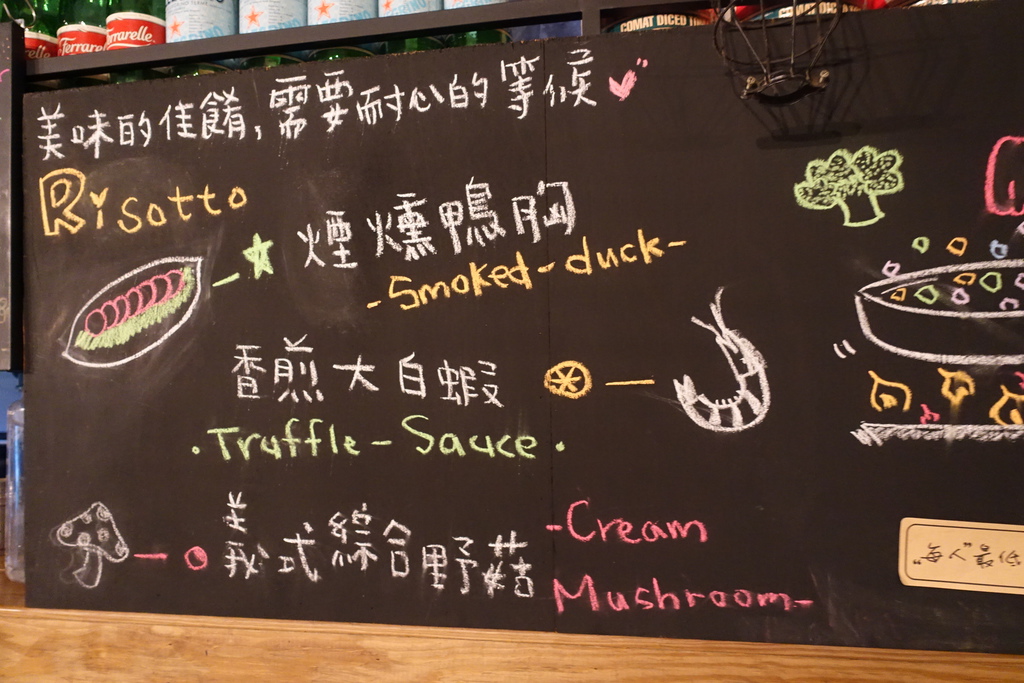 Ferrarelle
Ferrarelle
COMAT DICED
美味的佳餚,需要耐心的等候
Risotto
煙燻鴨胸
-Smoked-duck-
香煎大白蝦
·Truffle-Sauce·
義式綜合野菇
-Cream
Mushroom-
"每人"最低